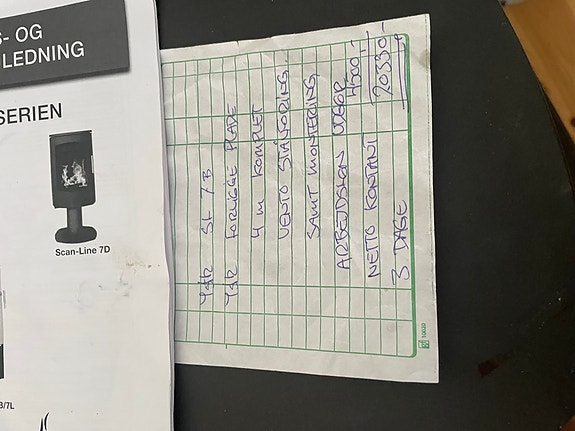 S- OG
LEDNING
SERIEN
Scan-Line 7D
B/7L
1 stk SL 7B
1 stk FORLIGGE PLADE
4 m KOMPLET
VENTO STÅLFORING
SAMT MONTERING
ARBEJDSLØN UDGØR 4500,-
NETTO KONTANT 20330,-
3 DAGE